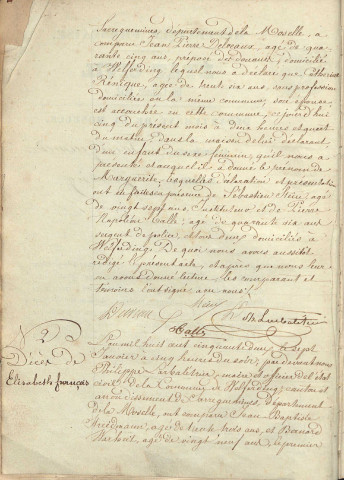 Sarreguemines, département de la Moselle, a
comparu Jean Pierre Delveaux, agé de qua-
rante cinq ans, préposé des douanes, domicilié
à Welferding lequel nous a déclaré que Catherine
agée de trente six ans, sans profession
domiciliée en la même commune, son épouse
est accouchée en cette commune, ce jourd'hui
cinq du présent mois à deux heures et quart
du matin dans la maison de lui déclarant
d'un enfant du sexe féminin, qu'il nous a
présenté et auquel il a donné le prénom de
Marguerite, lesquelles déclaration et présentation
ont été faites en présence de Sébastien
de vingt sept ans, Instituteur et de Pierre
Napoléon Calle, agé de quarante six ans
sergent de police, tous deux domiciliés à
Welferding. De quoi nous avons aussitôt
rédigé le présent acte, et après que nous leur
en avons donné lecture, les comparant et
témoins l'ont signé avec nous.
Calle
N° 2
Décès de
Elisabeth François
L'an mil huit cent cinquante deux le sept
Janvier à cinq heures du soir, par devant nous
Philippe maire et officier de l'état
civil de la Commune de Welferding, canton et
arrondissement de Sarreguemines, département
de la Moselle, ont comparu Jean-Baptiste
agé de trente trois ans, et Bernard
agé de vingt neuf ans, le premier